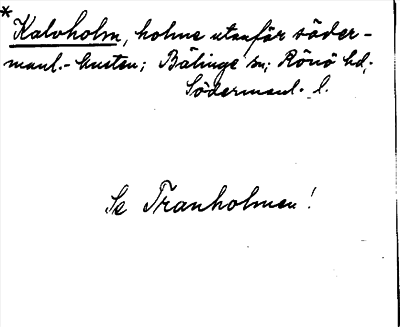 * Kalvholm, holme utanför söder-
manl.-kusten; Bälinge sn; Rönö hd;
Södermanl. l.
Se Tranholmen!